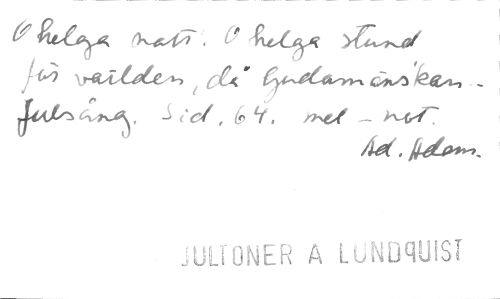 O helga natt. O helga stund
för världen, då Gudamänskan -
Julsång. Sid. 64. mel - not.
Ad. Adam.
JULTONER A LUNDQUIST